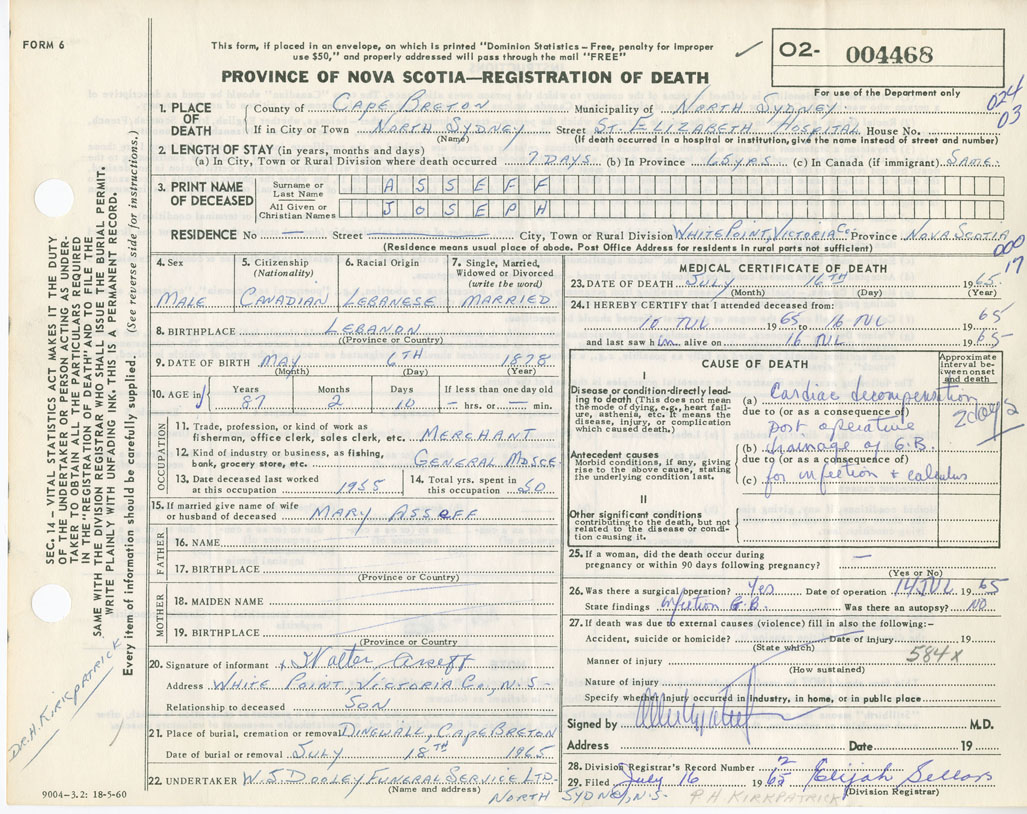 FORM 6
This form, if placed in an envelope, on which is printed "Dominion Statistics – Free, penalty for improper
use $50," and properly addressed will pass through the mail "FREE"
PROVINCE OF NOVA SCOTIA—REGISTRATION OF DEATH
✓
O2- 004468
For use of the Department only
024
03
SEC. 14 – VITAL STATISTICS ACT MAKES IT THE DUTY
OF THE UNDERTAKER OR PERSON ACTING AS UNDER-
TAKER TO OBTAIN ALL THE PARTICULARS REQUIRED
IN THE "REGISTRATION OF DEATH" AND TO FILE THE
SAME WITH THE DIVISION REGISTRAR WHO SHALL ISSUE THE BURIAL PERMIT.
WRITE PLAINLY WITH UNFADING INK. THIS IS A PERMANENT RECORD.
Every item of information should be carefully supplied. (See reverse side for instructions.)
DR. H. KIRKPATRICK
1. PLACE OF DEATH
County of CAPE BRETON Municipality of NORTH SYDNEY
If in City or Town NORTH SYDNEY Street ST. ELIZABETH HOSPITAL House No.
(Name) (If death occurred in a hospital or institution, give the name instead of street and number)
2. LENGTH OF STAY (in years, months and days)
(a) In City, Town or Rural Division where death occurred 7 DAYS (b) In Province 65 YRS (c) In Canada (if immigrant) SAME
3. PRINT NAME OF DECEASED
Surname or Last Name ASSEFF
All Given or Christian Names JOSEPH
RESIDENCE No — Street — City, Town or Rural Division WHITE POINT, VICTORIA Co. Province NOVA SCOTIA
(Residence means usual place of abode. Post Office Address for residents in rural parts not sufficient)
000
17
4. Sex
MALE
5. Citizenship
(Nationality)
CANADIAN
6. Racial Origin
LEBANESE
7. Single, Married,
Widowed or Divorced
(write the word)
MARRIED
8. BIRTHPLACE LEBANON
(Province or Country)
9. DATE OF BIRTH MAY 6TH 1878
(Month) (Day) (Year)
10. AGE in
Years Months Days If less than one day old
87 2 10 — hrs. or — min.
OCCUPATION
11. Trade, profession, or kind of work as
fisherman, office clerk, sales clerk, etc. MERCHANT
12. Kind of industry or business, as fishing,
bank, grocery store, etc. GENERAL MDSCE
13. Date deceased last worked
at this occupation 1955
14. Total yrs. spent in
this occupation 50
15. If married give name of wife
or husband of deceased MARY ASSEFF
FATHER
16. NAME
17. BIRTHPLACE
(Province or Country)
MOTHER
18. MAIDEN NAME
19. BIRTHPLACE
(Province or Country)
20. Signature of informant x Walter Asseff
Address WHITE POINT, VICTORIA Co., N.S-
Relationship to deceased SON
21. Place of burial, cremation or removal DINGWALL, CAPE BRETON
Date of burial or removal JULY 18TH 1965
22. UNDERTAKER W.J. DOOLEY FUNERAL SERVICE LTD-
(Name and address)
NORTH SYDNEY, N.S.
9004–3.2: 18-5-60
MEDICAL CERTIFICATE OF DEATH
23. DATE OF DEATH JULY 16TH 1965
(Month) (Day) (Year)
24. I HEREBY CERTIFY that I attended deceased from:
10 JUL 1965 to 16 JUL 1965
and last saw him alive on 16 JUL 1965
CAUSE OF DEATH
Approximate
interval be-
tween onset
and death
I
Disease or condition directly lead-
ing to death (This does not mean
the mode of dying, e.g., heart fail-
ure, asthenia, etc. It means the
disease, injury, or complication
which caused death.)
(a) Cardiac decompensation
2 days
due to (or as a consequence of)
post operative
Antecedent causes
Morbid conditions, if any, giving
rise to the above cause, stating
the underlying condition last.
(b) drainage of G.B.
due to (or as a consequence of)
(c) for infection + calculus
II
Other significant conditions
contributing to the death, but not
related to the disease or condi-
tion causing it.
25. If a woman, did the death occur during
pregnancy or within 90 days following pregnancy? —
(Yes or No)
26. Was there a surgical operation? Yes Date of operation 14 JUL 1965
State findings infection G.B. Was there an autopsy? NO
27. If death was due to external causes (violence) fill in also the following:–
Accident, suicide or homicide? Date of injury 19
(State which)
584x
Manner of injury
(How sustained)
Nature of injury
Specify whether injury occurred in industry, in home, or in public place
Signed by M.D.
Address Date 19
28. Division Registrar's Record Number 2
29. Filed July 16 1965 Elijah Sellars
(Division Registrar)
H. KIRKPATRICK